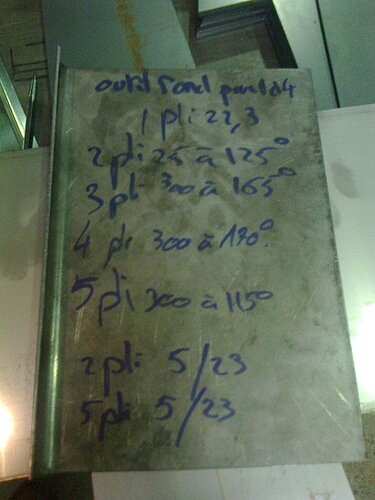 outil rond
1 pli 22,3
2 pli 25 à 125°
3 pli 300 à 165°
4 pli 300 à 170°
5 pli 300 à 115°
2 pli 5/23
5 pli 5/23